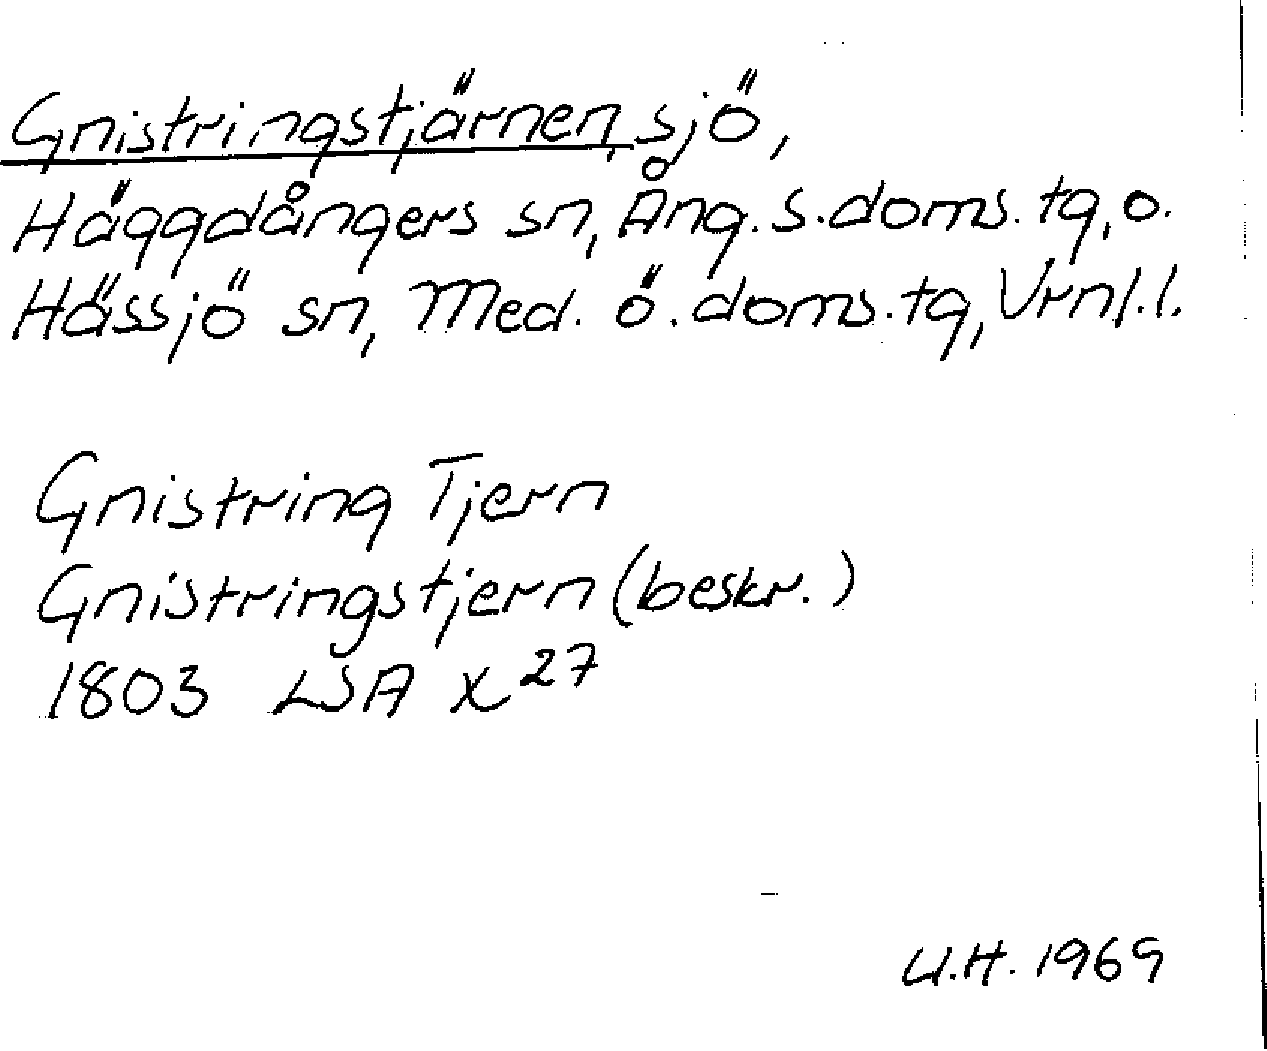 Gnistringstjärnen, sjö,
Häggdångers sn, Ång. s. doms. tg, o.
Hässjö sn, Med. ö. doms. tg, Vrnl.l.
Gnistring Tjern
Gnistringstjern (beskr.)
1803 LSA X 27
U.H. 1969